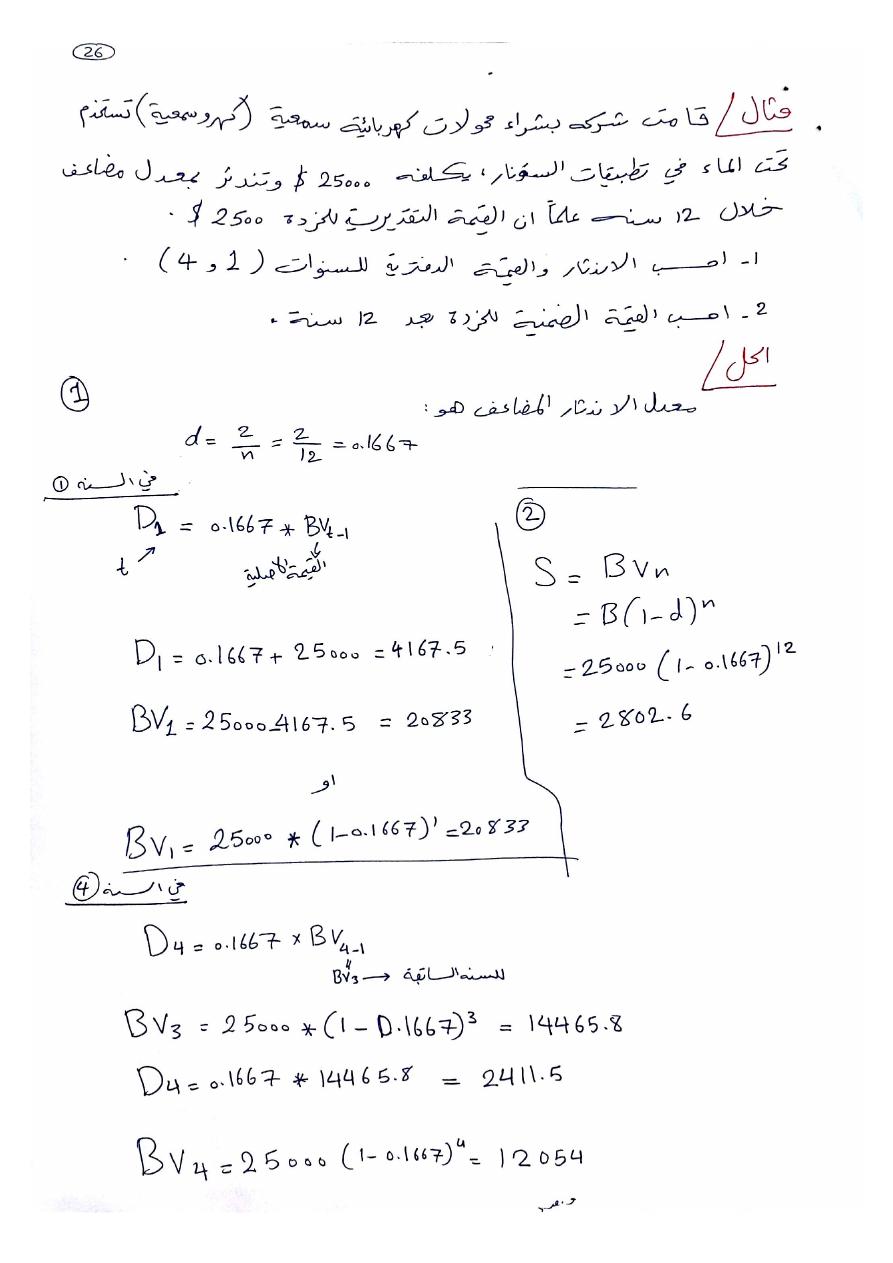 26
مثال / قامت شركه بشراء محولات كهربائية سمعية (كهروسمعية) تستخدم
تحت الماء في تطبيقات السونار، بكلفه 25000 $ وتندثر بمعدل مضاعف
خلال 12 سنه علماً ان القيمة التقديرية للخردة 2500 $ .
1- احسب الاندثار والقيمة الدفترية للسنوات (1 و 4) .
2- احسب القيمة الضمنية للخردة بعد 12 سنة .
الحل /
1
معدل الاندثار المضاعف هو :
d = 2/n = 2/12 = 0.1667
في السنه 1
D1 = 0.1667 * BVt-1
t
القيمة الاصلية
D1 = 0.1667 + 25000 = 4167.5
BV1 = 25000-4167.5 = 20833
او
BV1 = 25000 * (1-0.1667)^1 = 20833
2
S = BVn
= B(1-d)^n
= 25000 (1-0.1667)^12
= 2802.6
في السنة 4
D4 = 0.1667 × BV4-1
BV3 → للسنه السابقة
BV3 = 25000 * (1-0.1667)^3 = 14465.8
D4 = 0.1667 * 14465.8 = 2411.5
BV4 = 25000 (1-0.1667)^4 = 12054